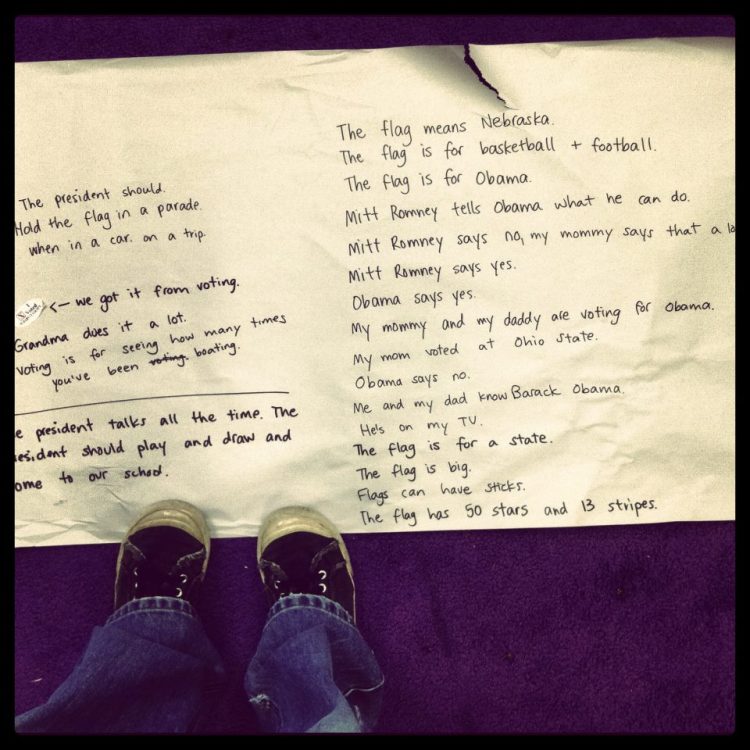 The president should.
Hold the flag in a parade.
when in a car. on a trip.
<— we got it from voting.
Grandma does it a lot.
voting is for seeing how many times
you've been voting. boating.
e president talks all the time. The
esident should play and draw and
ome to our school.
The flag means Nebraska.
The flag is for basketball + football.
The flag is for Obama.
Mitt Romney tells Obama what he can do.
Mitt Romney says no, my mommy says that a lo
Mitt Romney says yes.
Obama says yes.
My mommy and my daddy are voting for Obama.
My mom voted at Ohio State.
Obama says no.
Me and my dad know Barack Obama.
He's on my TV.
The flag is for a state.
The flag is big.
Flags can have sticks.
The flag has 50 stars and 13 stripes.